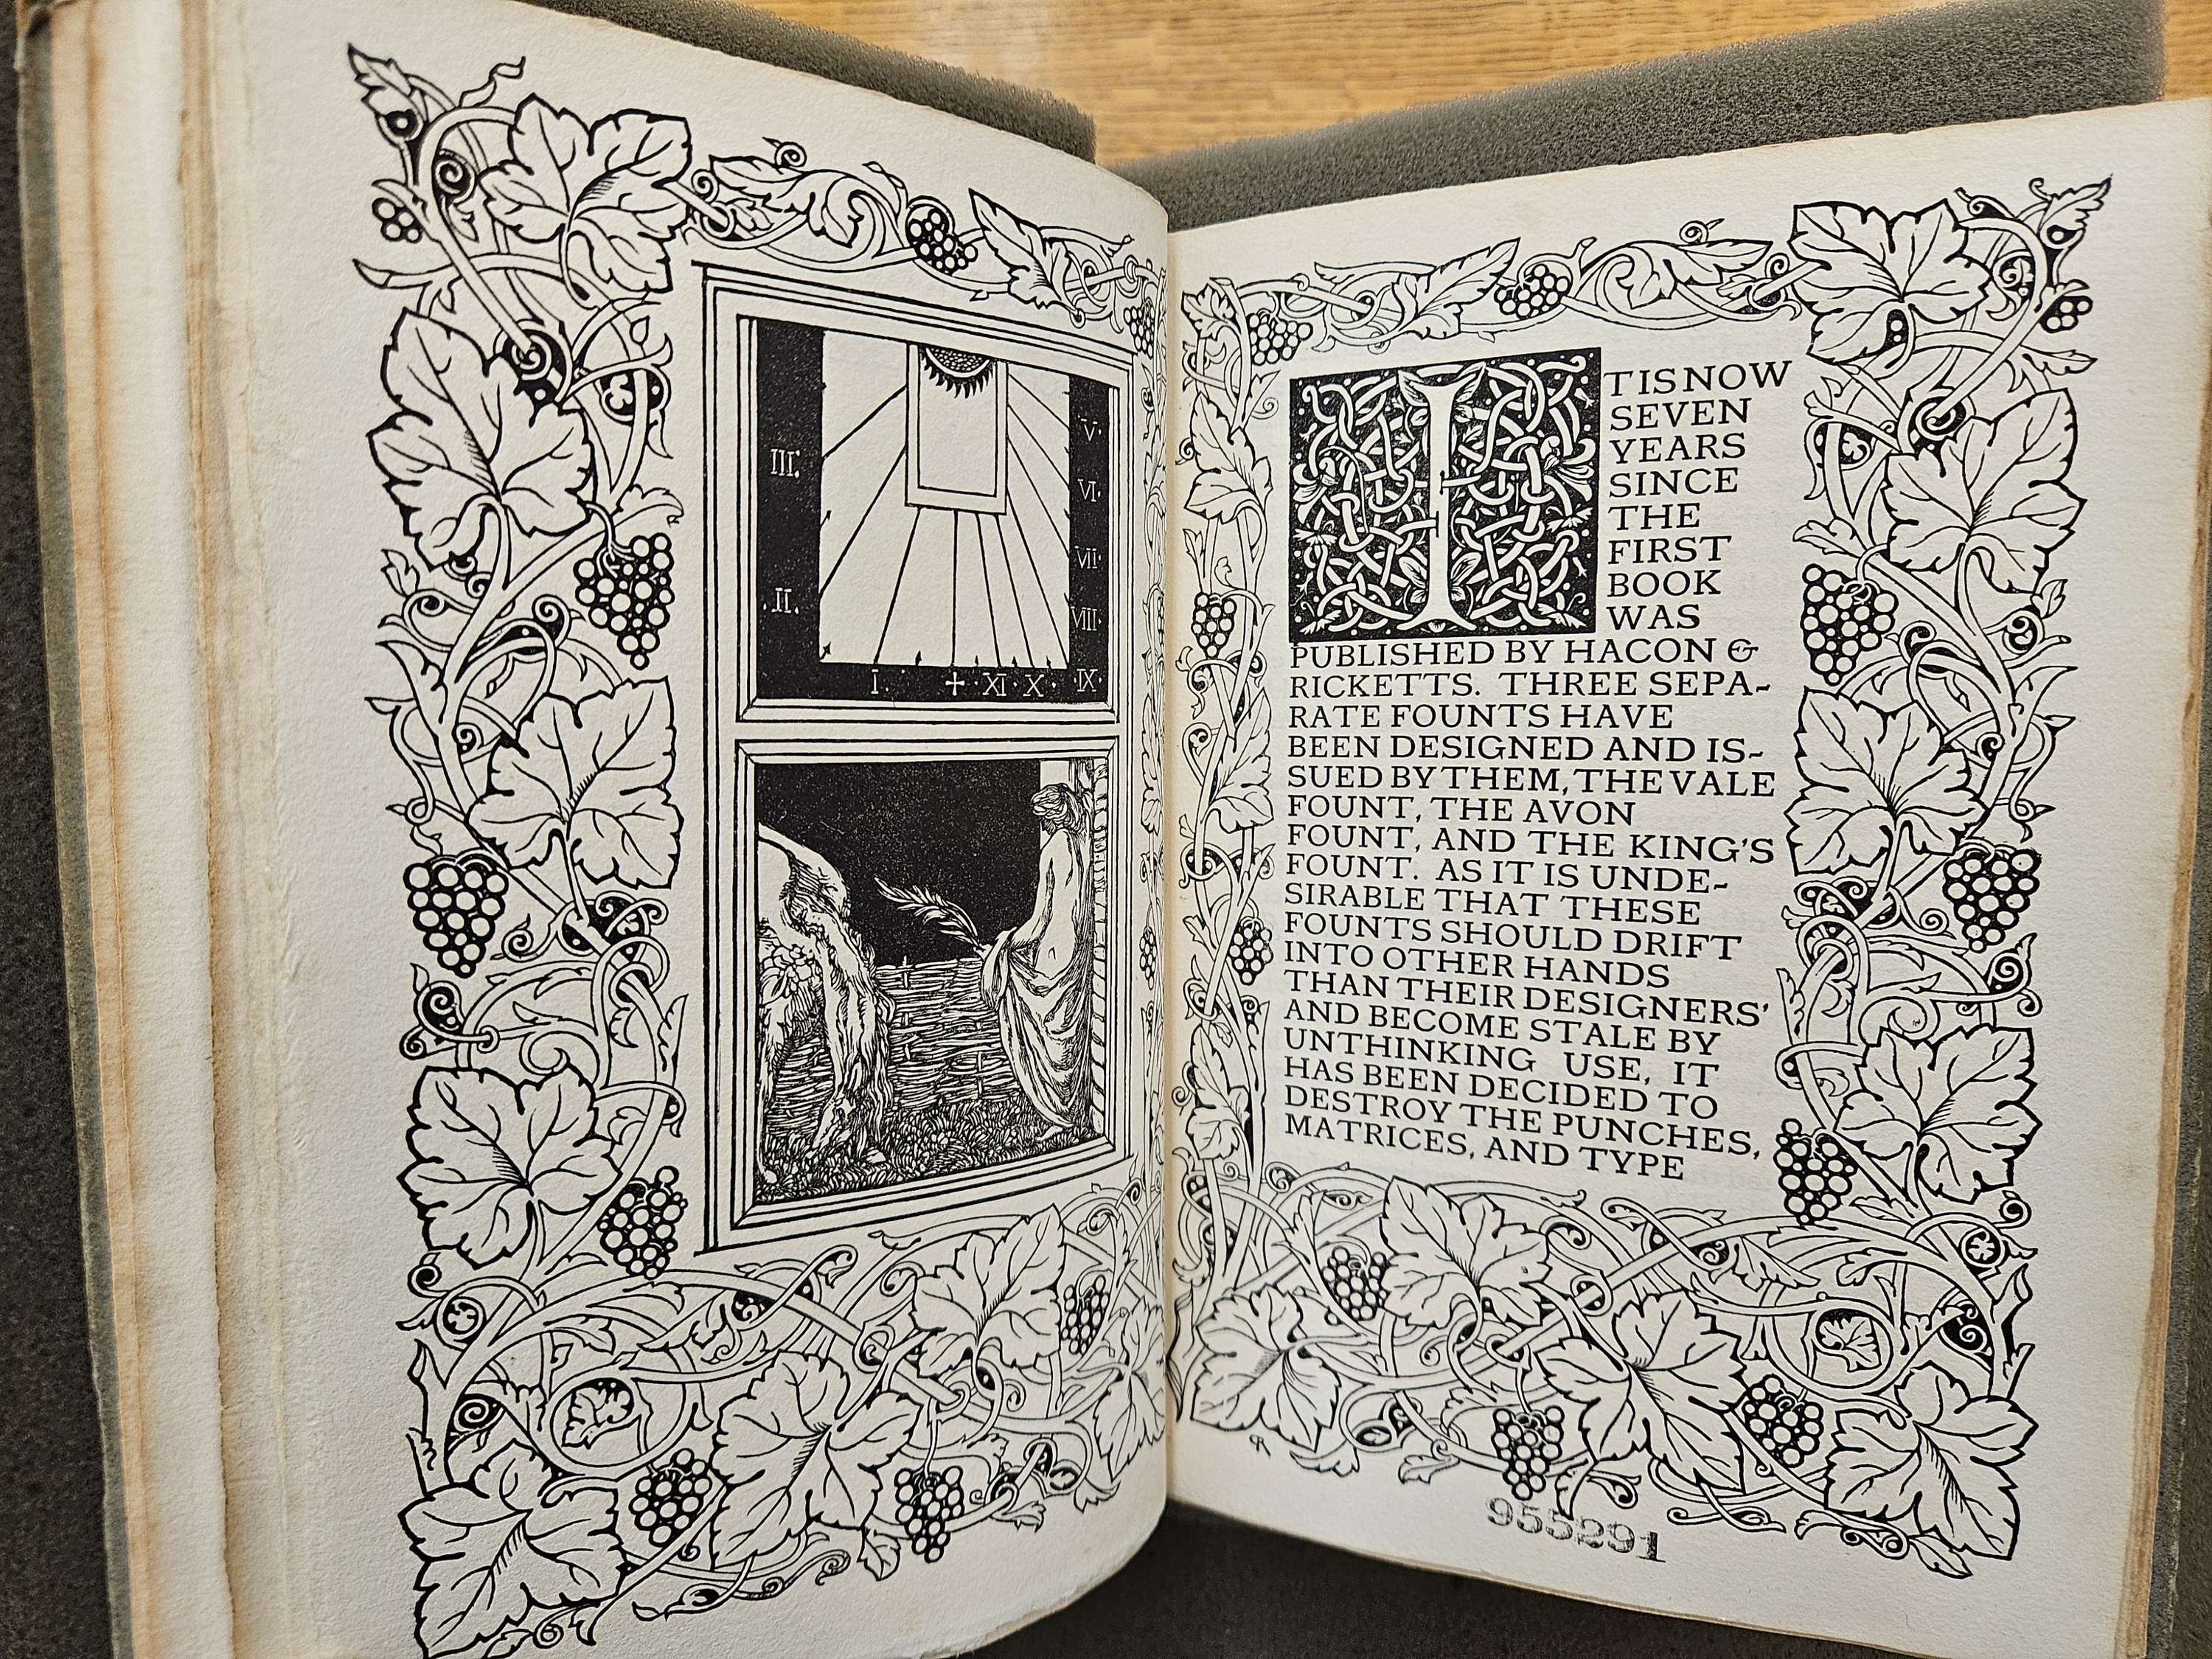 III.
.II.
I.
+
XI
X
IX
VIII
VII
VI
V
IT IS NOW
SEVEN
YEARS
SINCE
THE
FIRST
BOOK
WAS
PUBLISHED BY HACON &
RICKETTS. THREE SEPA-
RATE FOUNTS HAVE
BEEN DESIGNED AND IS-
SUED BY THEM, THE VALE
FOUNT, THE AVON
FOUNT, AND THE KING'S
FOUNT. AS IT IS UNDE-
SIRABLE THAT THESE
FOUNTS SHOULD DRIFT
INTO OTHER HANDS
THAN THEIR DESIGNERS'
AND BECOME STALE BY
UNTHINKING USE, IT
HAS BEEN DECIDED TO
DESTROY THE PUNCHES,
MATRICES, AND TYPE
CR
955291